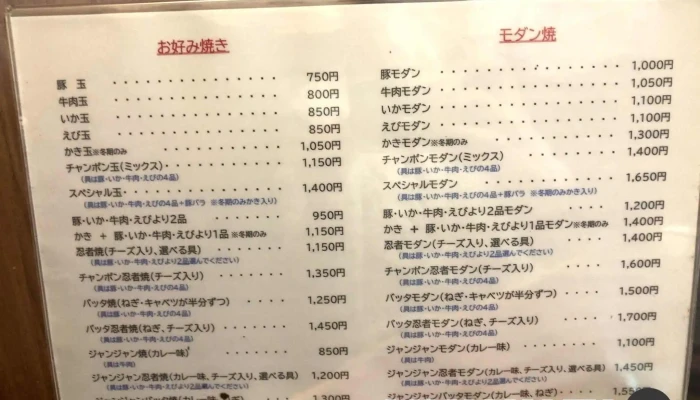 お好み焼き
豚 玉 ・・・・・・・・・・・・・・・ 750円
牛肉玉 ・・・・・・・・・・・・・・・ 800円
いか玉 ・・・・・・・・・・・・・・・ 850円
えび玉 ・・・・・・・・・・・・・・・ 850円
かき玉※冬期のみ ・・・・・・・・・・・・ 1,050円
チャンポン玉(ミックス)・・・・・・・・・・ 1,150円
(具は豚・いか・牛肉・えびの4品)
スペシャル玉・・・・・・・・・・・・・ 1,400円
(具は豚・いか・牛肉・えびの4品+豚バラ ※冬期のみかき入り)
豚・いか・牛肉・えびより2品 ・・・・ 950円
かき + 豚・いか・牛肉・えびより1品 ※冬期のみ 1,150円
忍者焼(チーズ入り、選べる具) ・・・・・ 1,150円
(具は豚・いか・牛肉・えびより2品選んでください)
チャンポン忍者焼(チーズ入り) ・・・・・・ 1,350円
(具は豚・いか・牛肉・えびの4品)
バッタ焼(ねぎ・キャベツが半分ずつ) ・・・・ 1,250円
(具は豚・いか・牛肉・えびの4品)
バッタ忍者焼(ねぎ、チーズ入り) ・・・・・・・ 1,450円
(具は豚・いか・牛肉・えびの4品)
ジャンジャン焼(カレー味) ・・・・・・・ 850円
(具は牛肉)
ジャンジャン忍者焼(カレー味、チーズ入り、選べる具) 1,200円
(具は豚・いか・牛肉・えびより2品選んでください)
ジャンジャンバッタ焼(カレー味、ねぎ) ・・・・ 1,300円
モダン焼
豚モダン ・・・・・・・・・・・・・・・ 1,000円
牛肉モダン ・・・・・・・・・・・・・・ 1,050円
いかモダン ・・・・・・・・・・・・・・ 1,100円
えびモダン ・・・・・・・・・・・・・・ 1,100円
かきモダン※冬期のみ ・・・・・・・・・・ 1,300円
チャンポンモダン(ミックス) ・・・・・・・・ 1,400円
(具は豚・いか・牛肉・えびの4品)
スペシャルモダン ・・・・・・・・・・・ 1,650円
(具は豚・いか・牛肉・えびの4品+豚バラ ※冬期のみかき入り)
豚・いか・牛肉・えびより2品モダン ・・・・ 1,200円
かき + 豚・いか・牛肉・えびより1品モダン※冬期のみ 1,400円
忍者モダン(チーズ入り、選べる具) ・・・・ 1,400円
(具は豚・いか・牛肉・えびより2品選んでください)
チャンポン忍者モダン(チーズ入り) ・・・・ 1,600円
(具は豚・いか・牛肉・えびの4品)
バッタモダン(ねぎ・キャベツが半分ずつ) ・・・・ 1,500円
(具は豚・いか・牛肉・えびの4品)
バッタ忍者モダン(ねぎ、チーズ入り) ・・・・ 1,700円
(具は豚・いか・牛肉・えびの4品)
ジャンジャンモダン(カレー味) ・・・・・ 1,100円
(具は牛肉)
ジャンジャン忍者モダン(カレー味、チーズ入り、選べる具) 1,450円
(具は豚・いか・牛肉・えびより2品選んでください)
ジャンジャンバッタモダン(カレー味、ねぎ)・・・・